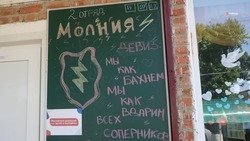 2 ОТРЯД
МОЛНИЯ
ДЕВИЗ
МЫ
КАК
БАХНЕМ
МЫ
КАК
ВДАРИМ
ВСЕХ
СОПЕРНИКОВ